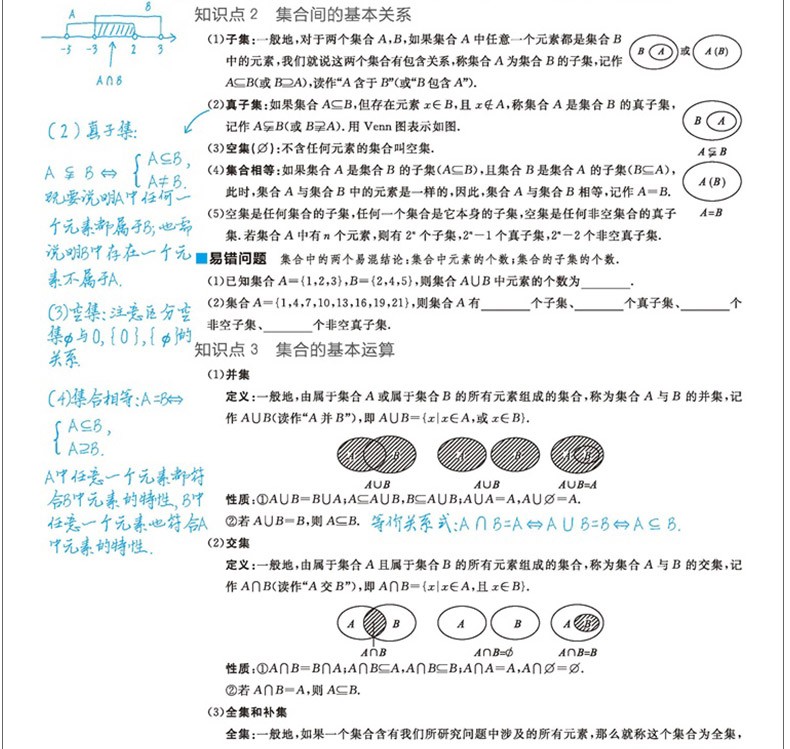 A
B
-5 -3 2 3
A∩B
(2)真子集:
A⫋B⇔{A⊆B,
A≠B.
既要说明A中任何一
个元素都属于B;也需
说明B中存在一个元
素不属于A.
(3)空集:注意区分空
集φ与0,{0},{φ}的
关系.
(4)集合相等:A=B⇔
{A⊆B,
A⊇B.
A中任意一个元素都符
合B中元素的特性,B中
任意一个元素也符合A
中元素的特性.
知识点2 集合间的基本关系
(1)子集:一般地,对于两个集合A,B,如果集合A中任意一个元素都是集合B
中的元素,我们就说这两个集合有包含关系,称集合A为集合B的子集,记作
A⊆B(或B⊇A),读作“A含于B”(或“B包含A”).
B A 或 A(B)
(2)真子集:如果集合A⊆B,但存在元素x∈B,且x∉A,称集合A是集合B的真子集,
记作A⫋B(或B⫌A).用Venn图表示如图.
B A
A⫋B
(3)空集(∅):不含任何元素的集合叫空集.
(4)集合相等:如果集合A是集合B的子集(A⊆B),且集合B是集合A的子集(B⊆A),
此时,集合A与集合B中的元素是一样的,因此,集合A与集合B相等,记作A=B.
A(B)
A=B
(5)空集是任何集合的子集,任何一个集合是它本身的子集,空集是任何非空集合的真子
集.若集合A中有n个元素,则有2ⁿ个子集,2ⁿ-1个真子集,2ⁿ-2个非空真子集.
易错问题 集合中的两个易混结论:集合中元素的个数;集合的子集的个数.
(1)已知集合A={1,2,3},B={2,4,5},则集合A∪B中元素的个数为________.
(2)集合A={1,4,7,10,13,16,19,21},则集合A有________个子集、________个真子集、________个
非空子集、________个非空真子集.
知识点3 集合的基本运算
(1)并集
定义:一般地,由属于集合A或属于集合B的所有元素组成的集合,称为集合A与B的并集,记
作A∪B(读作“A并B”),即A∪B={x|x∈A,或x∈B}.
A B A B A B
A∪B A∪B A∪B=A
性质:①A∪B=B∪A;A⊆A∪B,B⊆A∪B;A∪A=A,A∪∅=A.
②若A∪B=B,则A⊆B. 等价关系式:A∩B=A⇔A∪B=B⇔A⊆B.
(2)交集
定义:一般地,由属于集合A且属于集合B的所有元素组成的集合,称为集合A与B的交集,记
作A∩B(读作“A交B”),即A∩B={x|x∈A,且x∈B}.
A B A B A B
A∩B A∩B=∅ A∩B=B
性质:①A∩B=B∩A;A∩B⊆A,A∩B⊆B;A∩A=A,A∩∅=∅.
②若A∩B=A,则A⊆B.
(3)全集和补集
全集:一般地,如果一个集合含有我们所研究问题中涉及的所有元素,那么就称这个集合为全集,